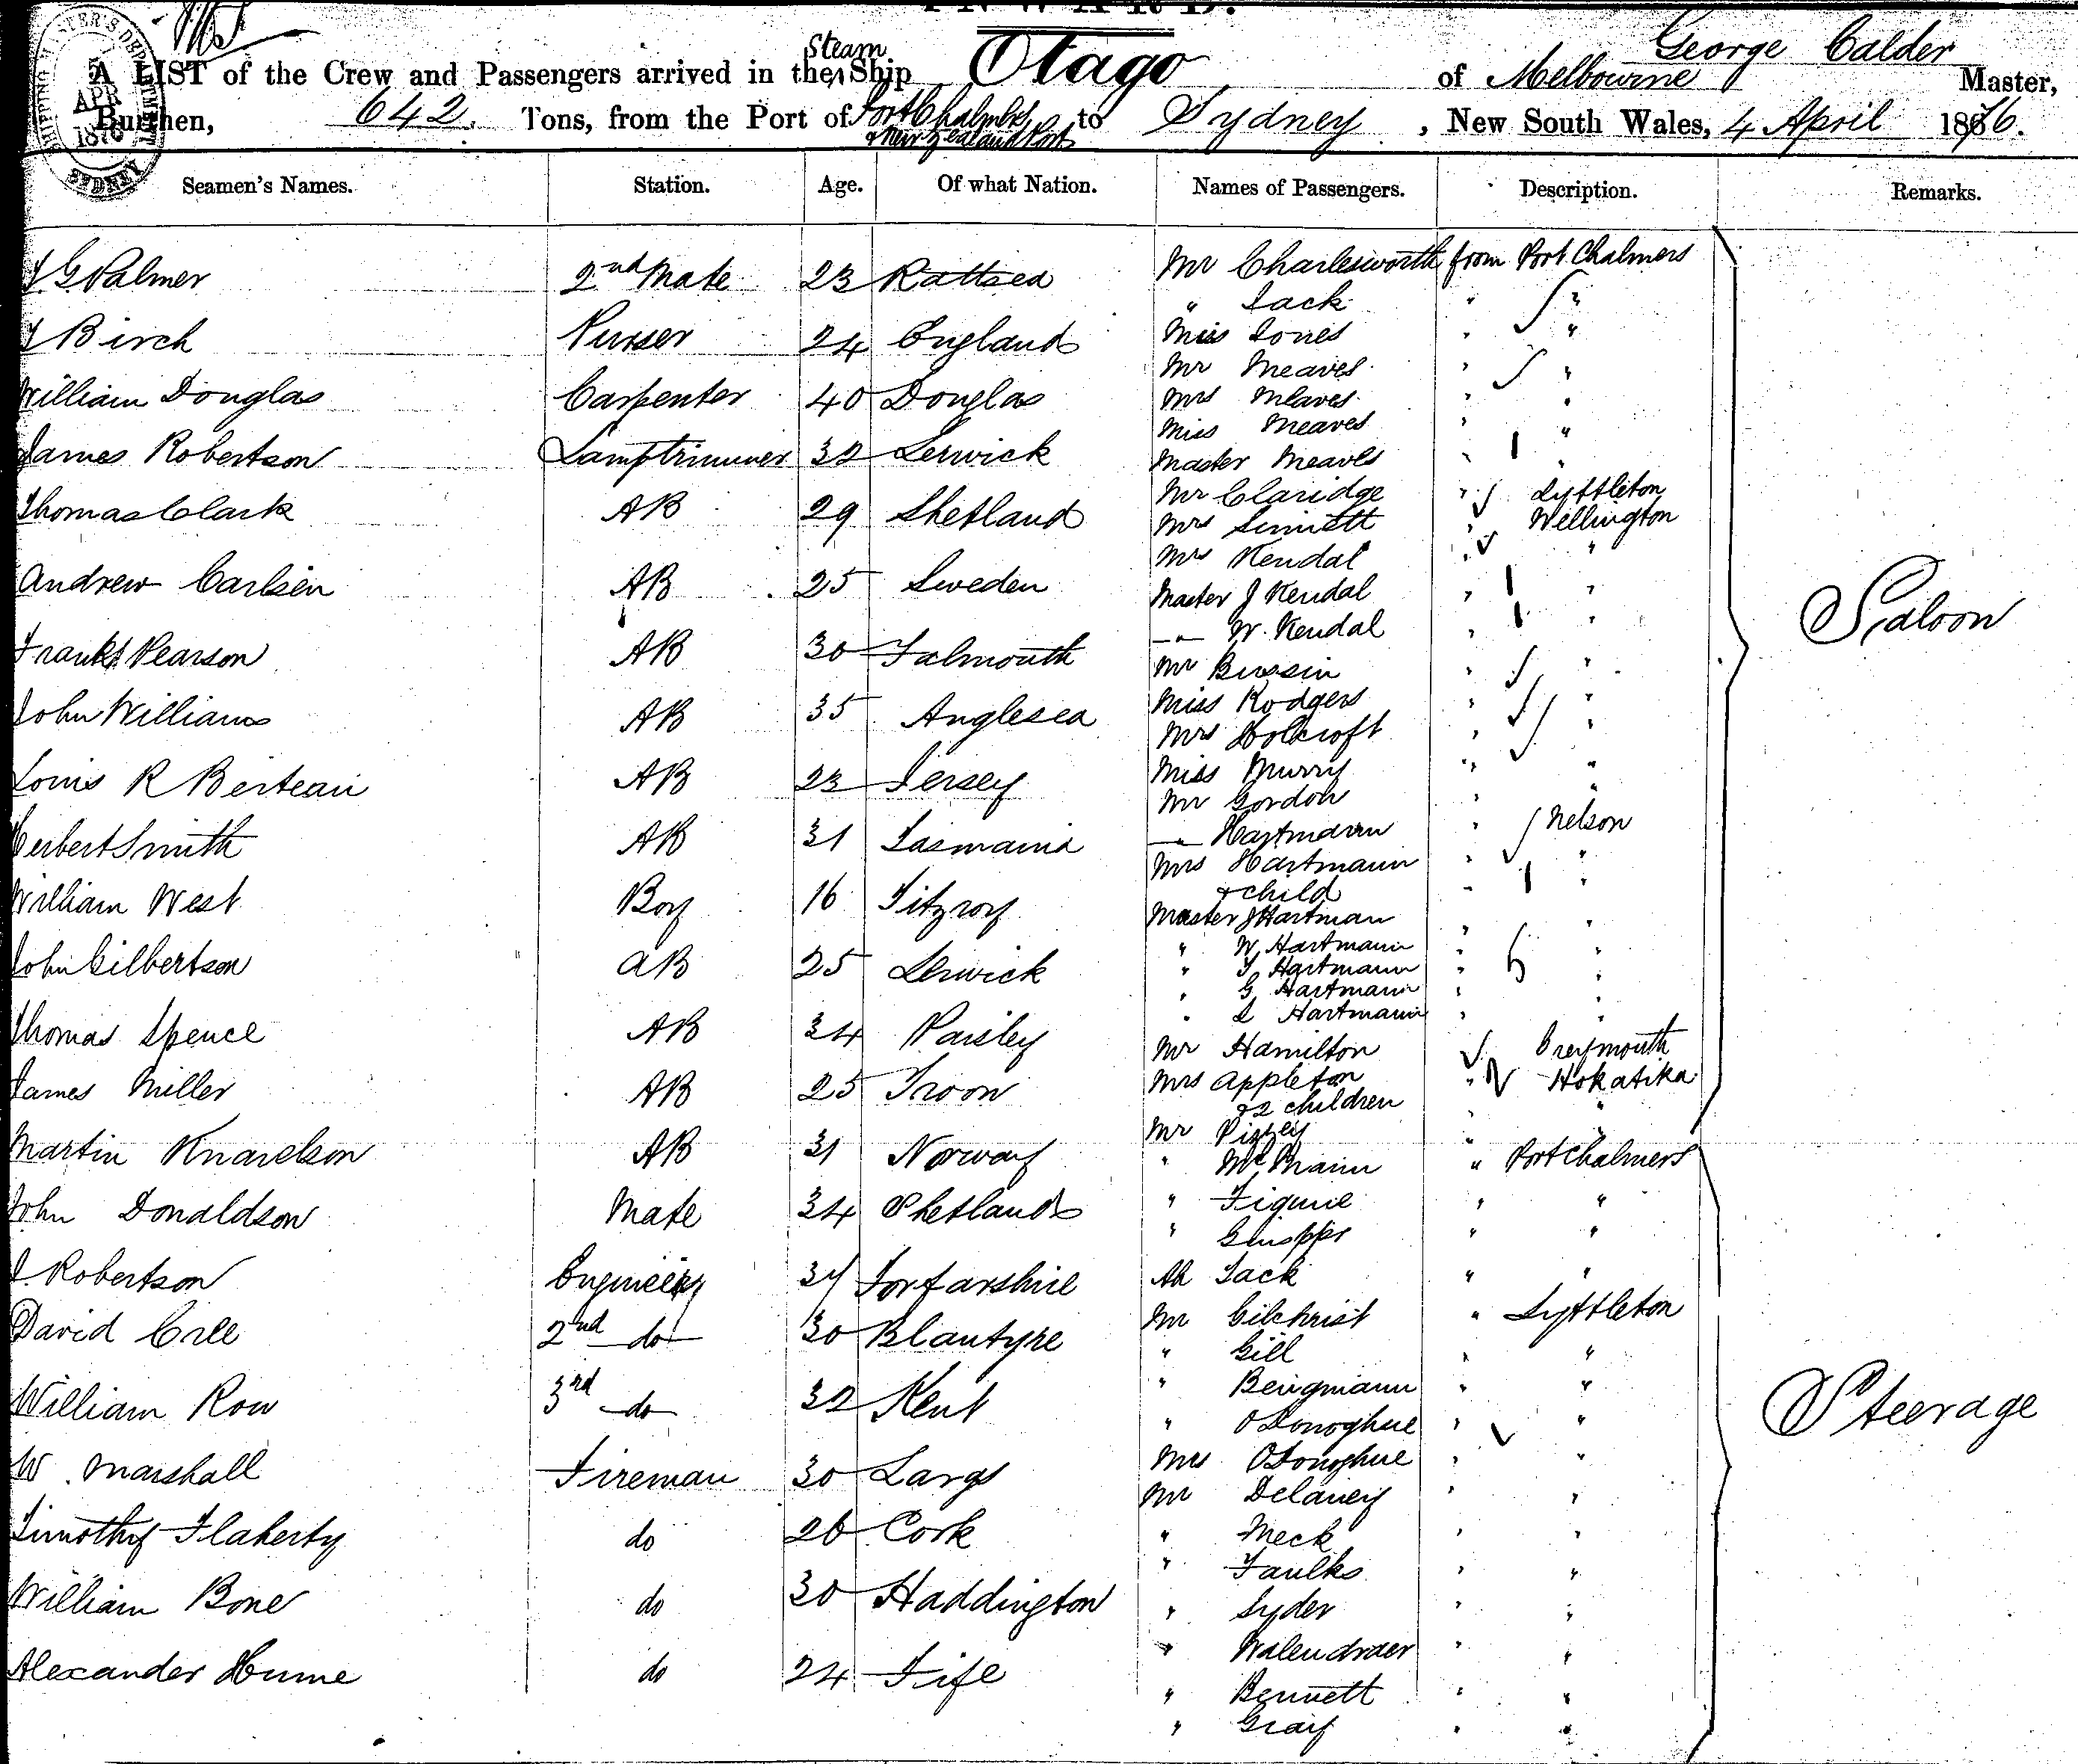 INWARD.
SHIPPING MASTER'S DEPARTMENT APR 1876 SYDNEY
A LIST of the Crew and Passengers arrived in the Steam Ship Otago of Melbourne George Calder Master,
Burthen, 642 Tons, from the Port of Port Chalmers & New Zealand Ports to Sydney, New South Wales, 4 April 1876.
Seamen's Names. Station. Age. Of what Nation. Names of Passengers. Description. Remarks.
G Palmer 2nd Mate 23 Battsea
Birch Purser 24 England
William Douglas Carpenter 40 Douglas
James Robertson Lamptrimmer 32 Lerwick
Thomas Clark AB 29 Shetland
Andrew Carlsen AB 25 Sweden
Frank Pearson AB 30 Falmouth
John Williams AB 35 Anglesea
Louis R Berteau AB 23 Jersey
Herbert Smith AB 31 Tasmania
William West Boy 16 Fitzroy
John Gilbertson AB 25 Lerwick
Thomas Spence AB 34 Paisley
James Miller AB 25 Troon
Martin Knavelson AB 31 Norway
John Donaldson Mate 34 Shetland
J Robertson Engineer 34 Forfarshire
David Cree 2nd do 30 Blantyre
William Row 3rd do 32 Kent
W. Marshall Fireman 30 Largs
Timothy Flaherty do 26 Cork
William Bone do 30 Haddington
Alexander Hume do 24 Fife
Mr Charlesworth from Port Chalmers
" Jack " "
Miss Jones " "
Mr Meaves " "
Mrs Meaves " "
Miss Meaves " "
Master Meaves "
Mr Claridge " Lyttleton
Mrs Sinnett " Wellington
Mrs Kendal " "
Master J Kendal " "
" W. Kendal " "
Mr Bussin " "
Miss Rodgers " "
Mrs Holcroft " "
Miss Murry " "
Mr Gordon " "
" Hartmann " Nelson
Mrs Hartmann " "
& child " "
Master J Hartman " "
" W Hartmann " "
" Hartmann " "
" G Hartmann " "
" L Hartmann " "
Mr Hamilton Greymouth
Mrs Appleton " Hokatika
& 2 children " "
Saloon
Mr "
" McBrain " Port Chalmers
" Figuie " "
" " "
Ah Jack " "
Mr Gilchrist " Lyttleton
" Gill " "
" Bengmann " "
" O Donoghue " "
Mrs O Donoghue " "
Mr Delaney " "
" Meck " "
" Faulks " "
" Syder " "
" Walendraer " "
" Bennett " "
" Gray " "
Steerage